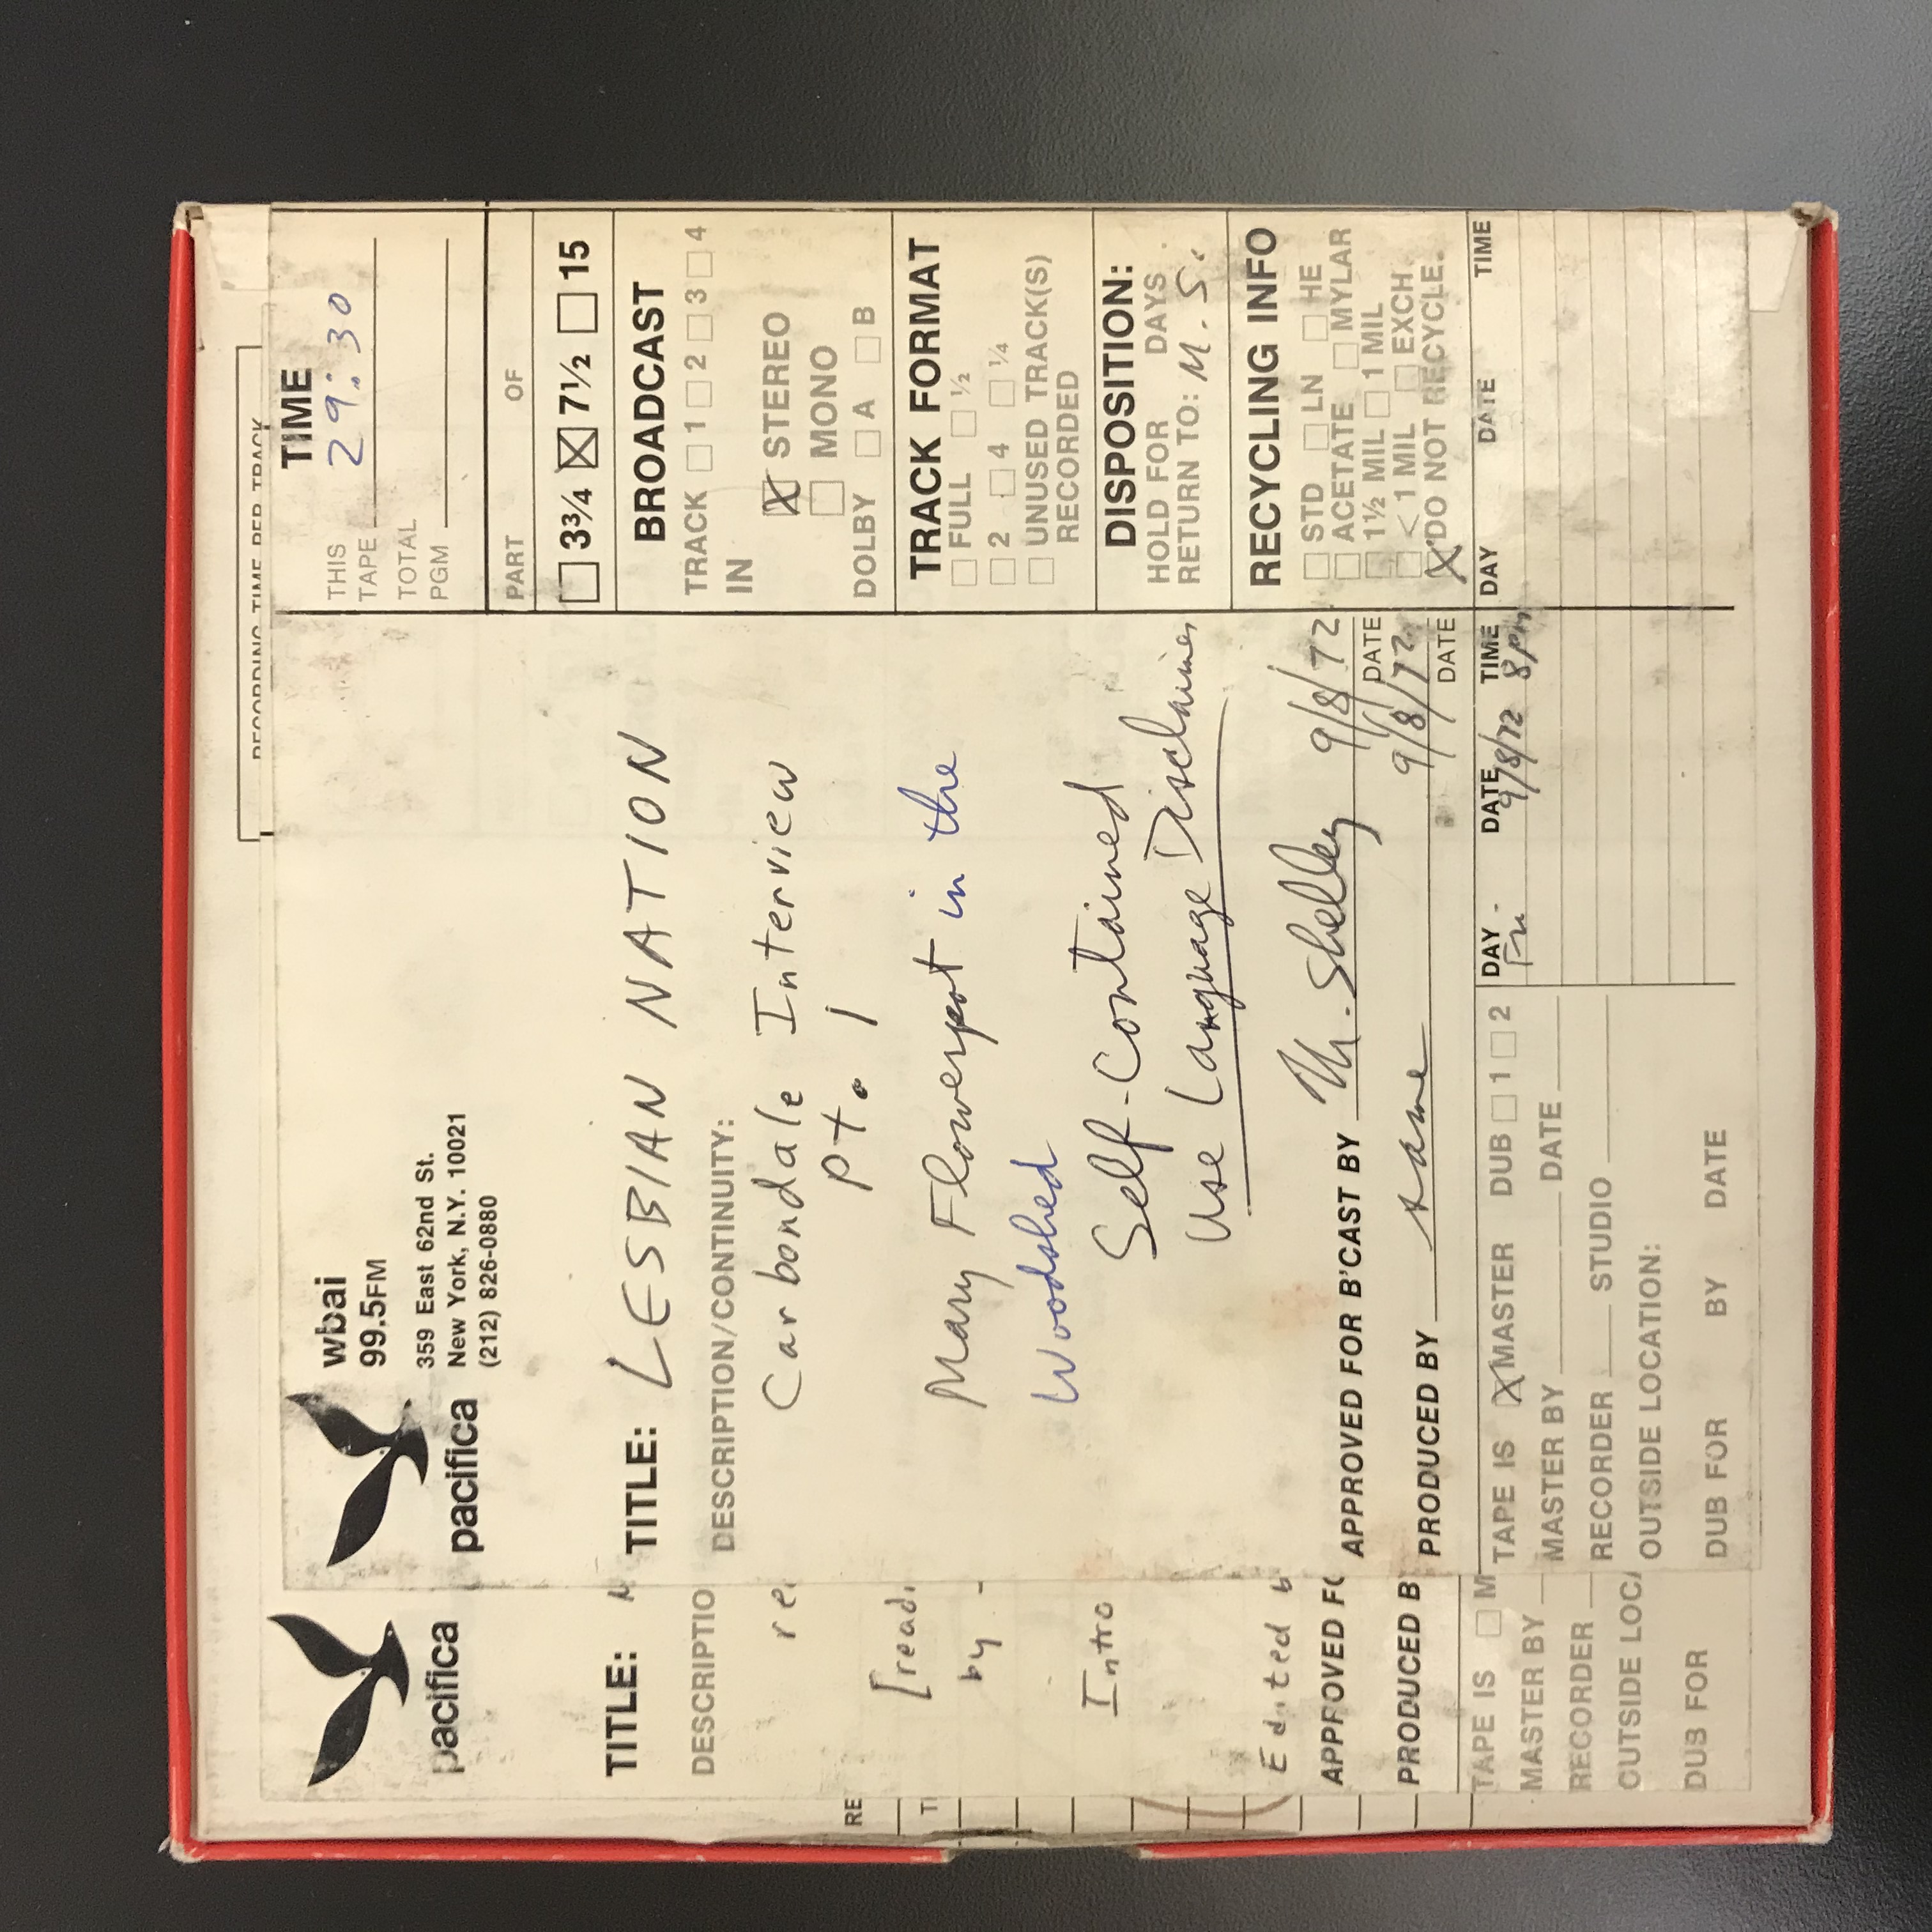 RECORDING TIME PER TRACK
pacifica
wbai
99.5FM
359 East 62nd St.
New York, N.Y. 10021
(212) 826-0880
TITLE: LESBIAN NATION
DESCRIPTION/CONTINUITY:
Carbondale Interview
pt. 1
Mary Flowerpot in the
Woodshed
Self-Contained
Use Language Disclaimer
APPROVED FOR B'CAST BY M. Shelley 9/8/72
DATE
PRODUCED BY same 9/8/72
DATE
TIME
THIS
TAPE 29:30
TOTAL
PGM
PART OF
3¾ 7½ 15
BROADCAST
TRACK 1 2 3 4
IN
STEREO
MONO
DOLBY A B
TRACK FORMAT
FULL ½
2 4 ¼
UNUSED TRACK(S)
RECORDED
DISPOSITION:
HOLD FOR DAYS
RETURN TO: M.S.
RECYCLING INFO
STD LN HE
ACETATE MYLAR
1½ MIL 1 MIL
< 1 MIL EXCH
DO NOT RECYCLE.
TAPE IS MASTER DUB 1 2
MASTER BY DATE
RECORDER STUDIO
OUTSIDE LOCATION:
DUB FOR BY DATE
DAY DATE TIME DAY DATE TIME
Fri 9/8/72 8PM
pacifica
TITLE:
DESCRIPTIO
re
[readi
by -
Intro
Edited b
APPROVED FO
PRODUCED B
TAPE IS M
MASTER BY
RECORDER
OUTSIDE LOCA
DUB FOR
RE
TI